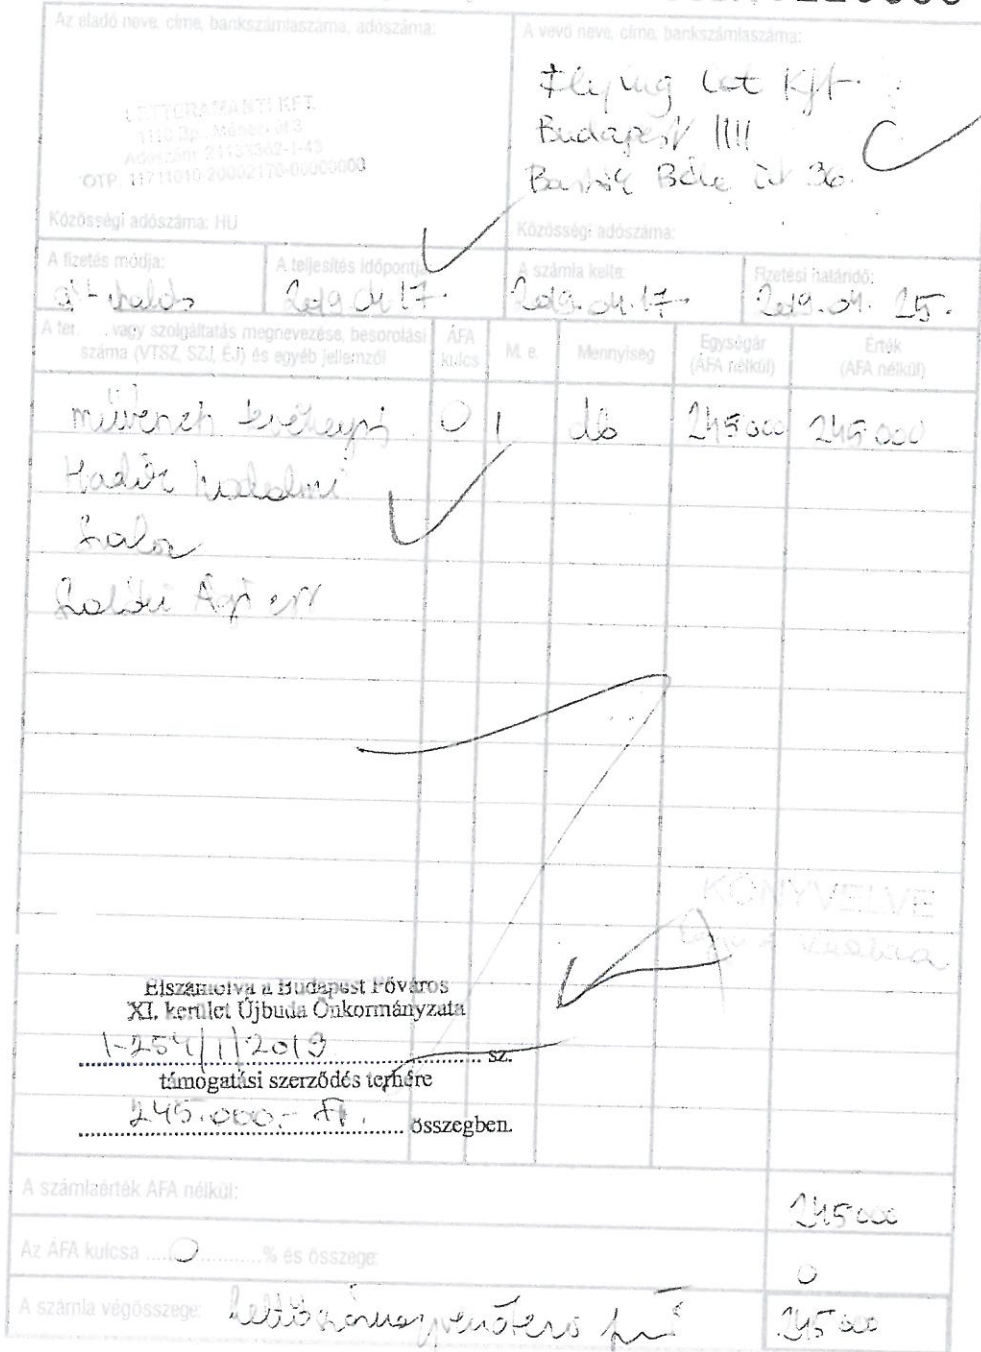 Az eladó neve, címe, bankszámlaszáma, adószáma:
LETTERAMANTI KFT.
1110 Bp., Ménesi út 3.
OTP: 11711010-20002170-00000000
Közösségi adószáma: HU
A vevő neve, címe, bankszámlaszáma:
Flying Cat Kft.
Budapest 1111
Bartók Béla út 36.
Közösségi adószáma:
A fizetés módja:
átutalás
A teljesítés időpontja:
2019.04.17.
A számla kelte:
2019.04.17.
Fizetési határidő:
2019.04.25.
A ter. vagy szolgáltatás megnevezése, besorolási
száma (VTSZ, SZJ, ÉJ) és egyéb jellemzői
ÁFA
kulcs
M. e.
Mennyiség
Egységár
(ÁFA nélkül)
Érték
(ÁFA nélkül)
0 1 db 245000 245000
Hadik Irodalmi
Szalon
Szalóki Ági est
KÖNYVELVE
Elszámolva a Budapest Főváros
XI. kerület Újbuda Önkormányzata
1-254/1/2019 sz.
támogatási szerződés terhére
245.000.- Ft. összegben.
A számlaérték ÁFA nélkül:
245000
Az ÁFA kulcsa ..... 0 ..... % és összege:
0
A számla végösszege:
245000